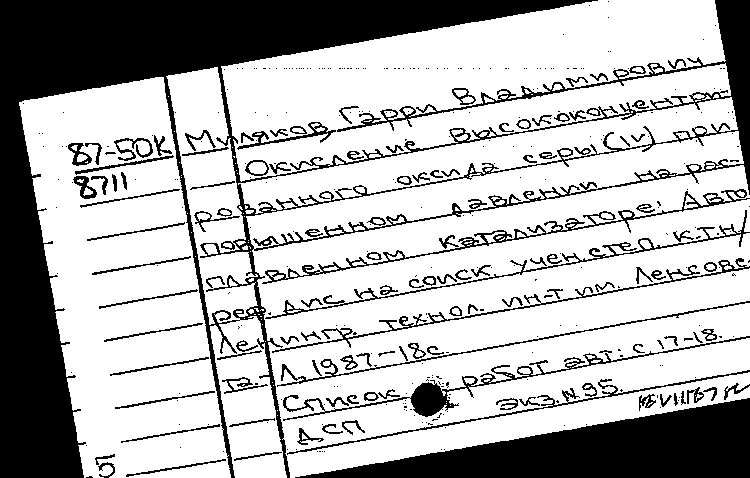 87-50К Муляков, Гарри Владимирович
8711 Окисление высококонцентри-
рованного оксида серы (IV) при
повышенном давлении на рас-
плавленном катализаторе: Авто
реф. дис. на соиск. учен. степ. к.т.н/
Ленингр. технол. ин-т им. Ленсове-
та.- Л, 1987-18с.
Список работ авт: с. 17-18.
ДСП экз. N 95.
5